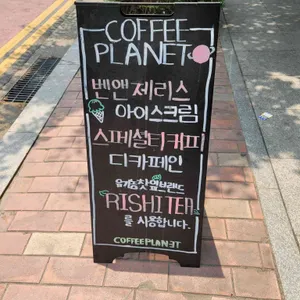 COFFEE
PLANET
벤앤제리스
아이스크림
스페셜티커피
디카페인
유기농찻잎브랜드
RISHITEA
를 사용합니다.
COFFEEPLANET